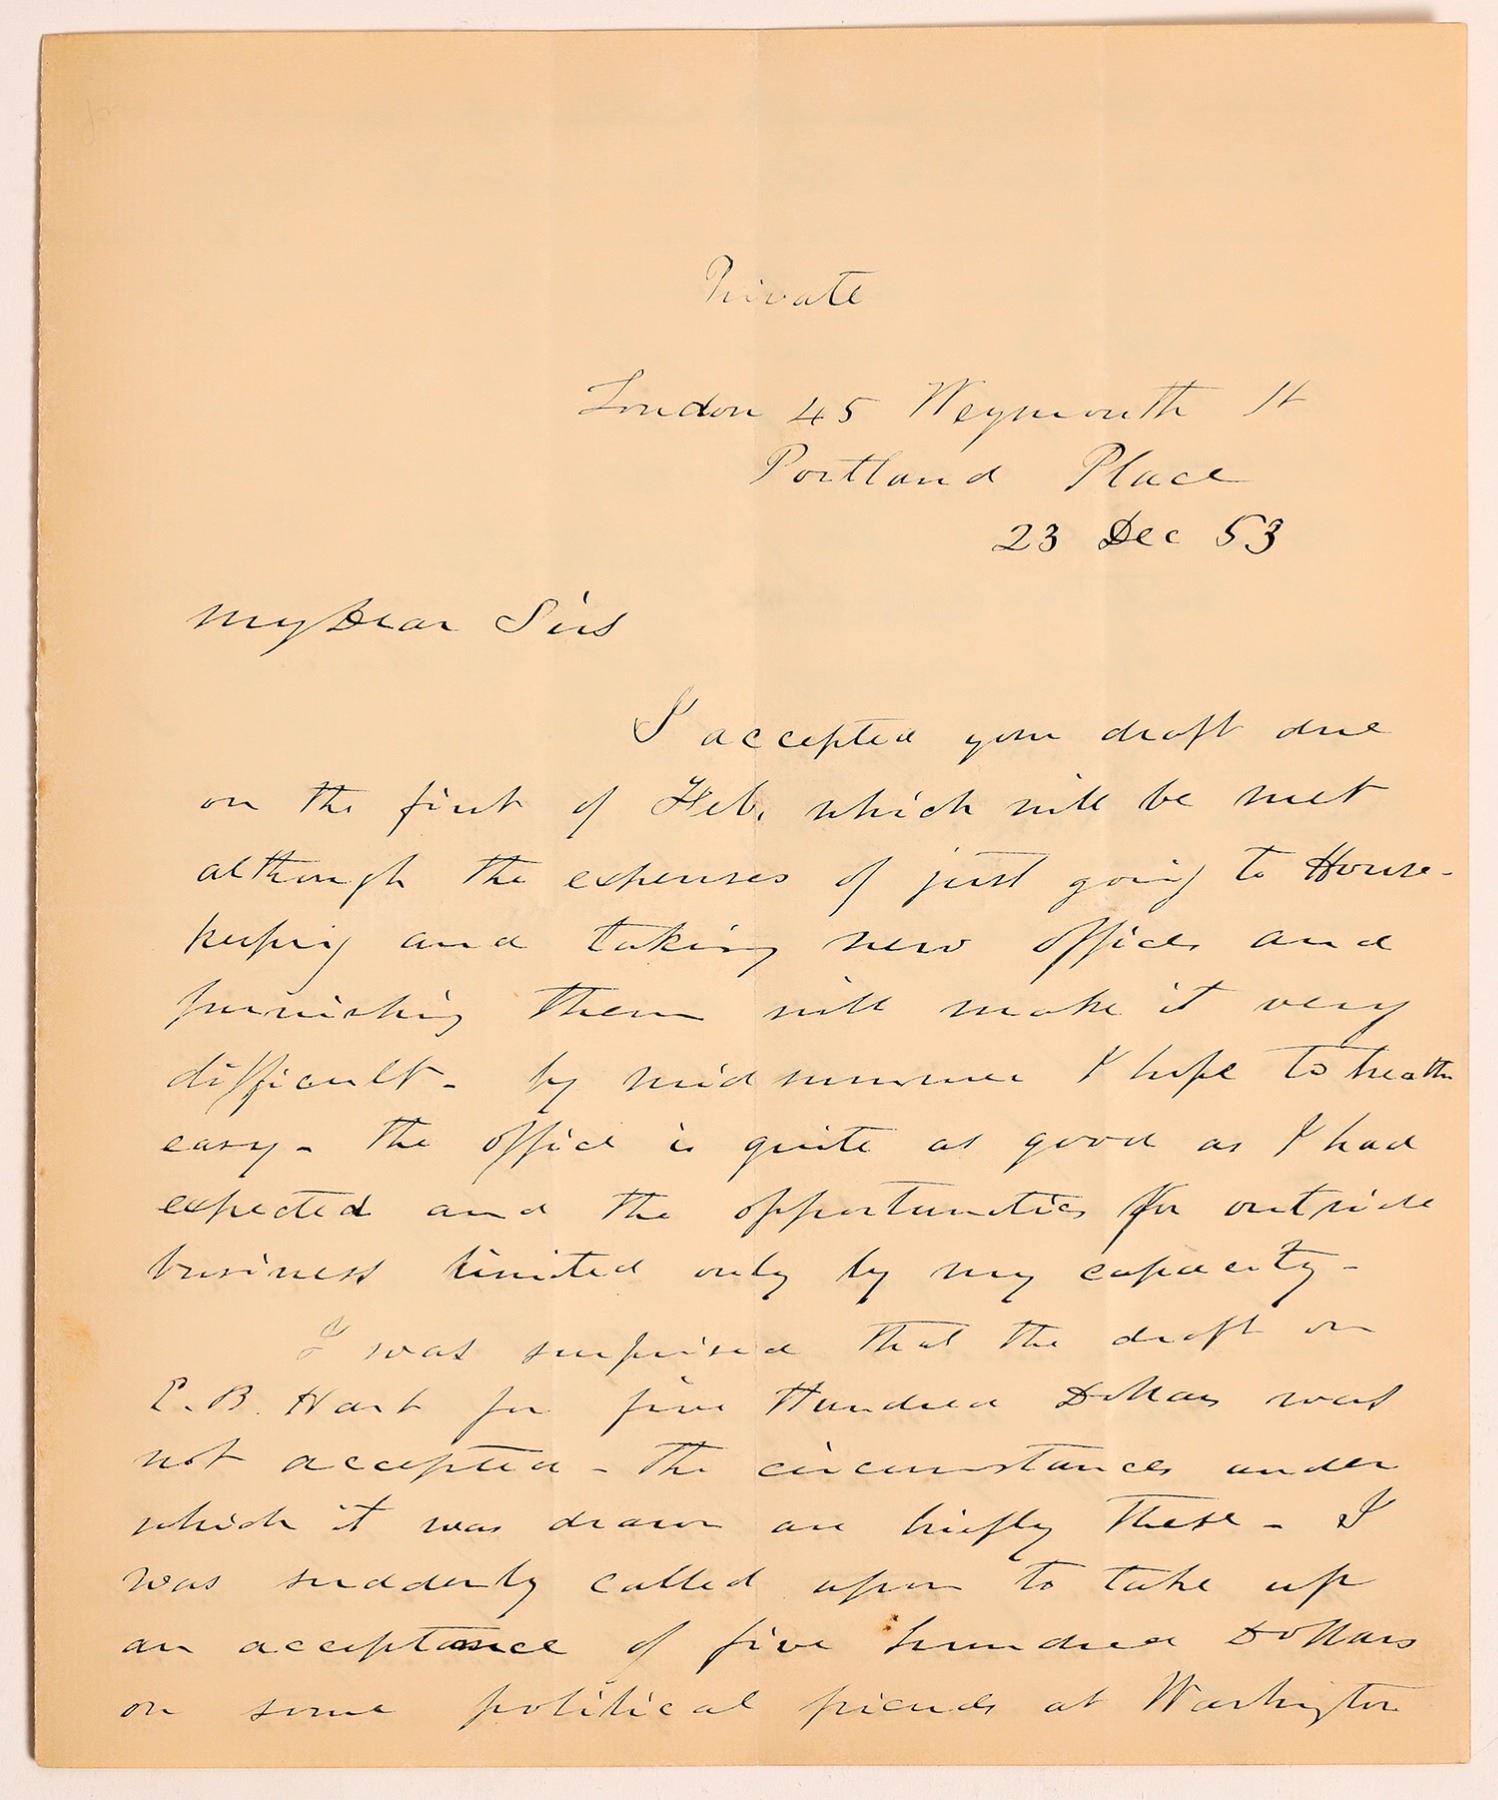 Private
London 45 Weymouth St
Portland Place
23 Dec 53
My Dear Sirs
I accepted your draft due
on the first of Feb. which will be met
although the expenses of just going to House-
keeping and taking new offices and
furnishing them will make it very
difficult - by midsummer I hope to breathe
easy - The office is quite as good as I had
expected and the opportunities for outside
business limited only by my capacity -
I was surprised that the draft on
E. B. Hart for five Hundred Dollars was
not accepted - The circumstances under
which it was drawn are briefly these - I
was suddenly called upon to take up
an acceptance of five hundred Dollars
on some political friends at Washington